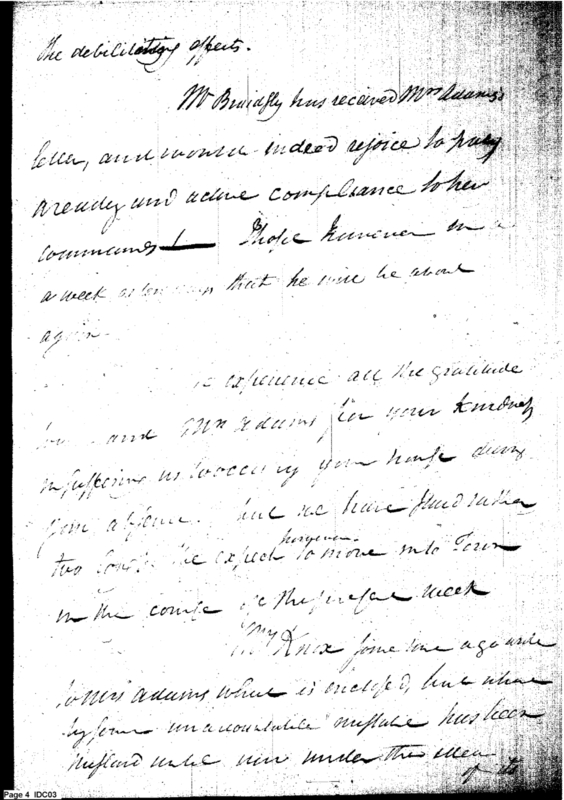 the debilitating effects.
Mr Briesly has received Mrs Adams's
letter, and would indeed rejoice to pay
a ready and active compliance to her
commands — I hope however in a
a week or ten days that he will be about
again.
experience all the gratitude
to you and Mrs Adams for your kindness
in suffering us to occupy your house during
your absence. but we have staid rather
too long. We expect however to move into Town
in the course of the present week
Mrs Knox some time ago wrote
to Mrs Adams what is enclosed, but which
by some unaccountable mistake has been
mislaid until now under the idea
of its
Page 4 IDC03